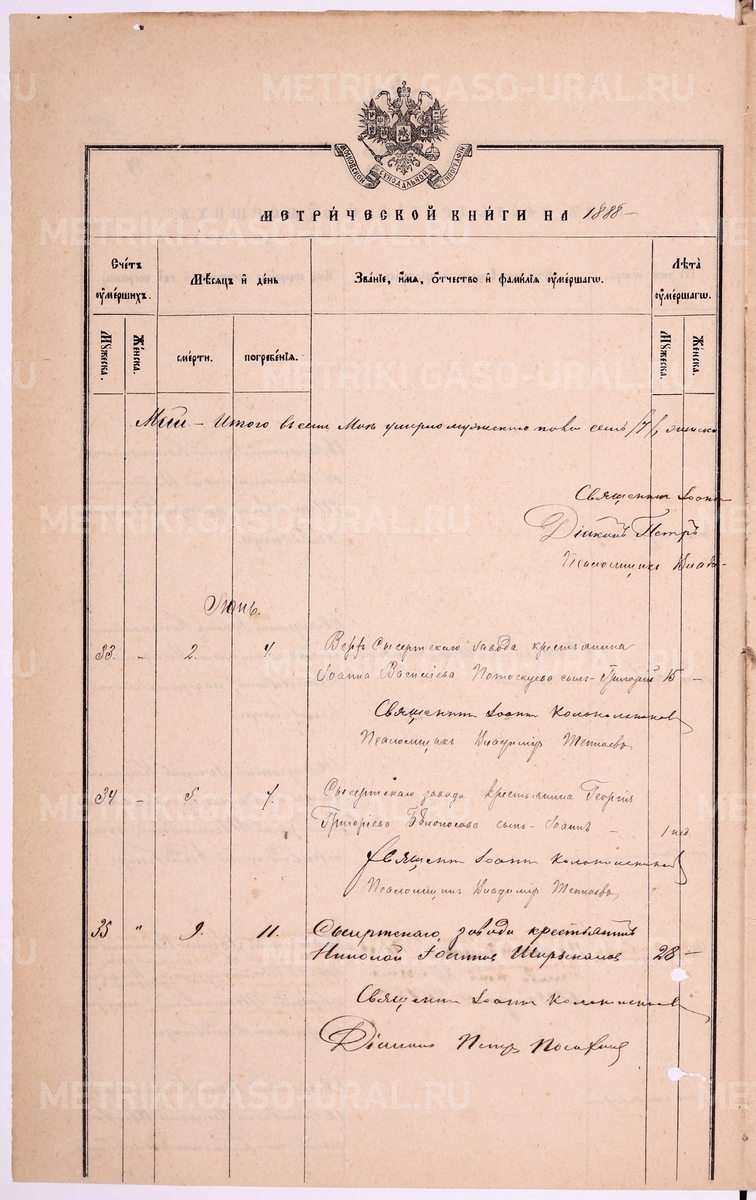 МЕТРИ́ЧЕСКОЙ КНИ́ГИ НА 1888
Сче́тъ ᲂу҆ме́ршихъ.
Мѣ́сяцъ и҆ де́нь
Зва́нїе, и҆́мя, ѻ҆́тчество и҆ фами́лїя ᲂу҆ме́ршагѡ.
Лѣ́та ᲂу҆ме́ршагѡ.
Му́жеска.
Же́нска.
сме́рти.
погребе́нїя.
Му́жеска.
Же́нска.
Итого въ семъ умерло мужеска пола семь /7/
Священникъ Іоаннъ
Діаконъ Петръ
Псаломщикъ Влади-
Іюнь.
33. - 2. 4. Верхъ Сысертскаго завода крестьянина
Іоанна Васильева сынъ Григорій 15 -
Священникъ Іоаннъ Колокольниковъ
Псаломщикъ Владиміръ
34 - 5. 7. Сысертскаго завода крестьянина Георгія
Григоріева сынъ Іоаннъ - 1 нед.
Священникъ Іоаннъ Колокольниковъ
Псаломщикъ Владиміръ
35 " 9. 11. Сысертскаго завода крестьянинъ
Николай 28 -
Священникъ Іоаннъ Колокольниковъ
Діаконъ Петръ
METRIKI.GASO-URAL.RU